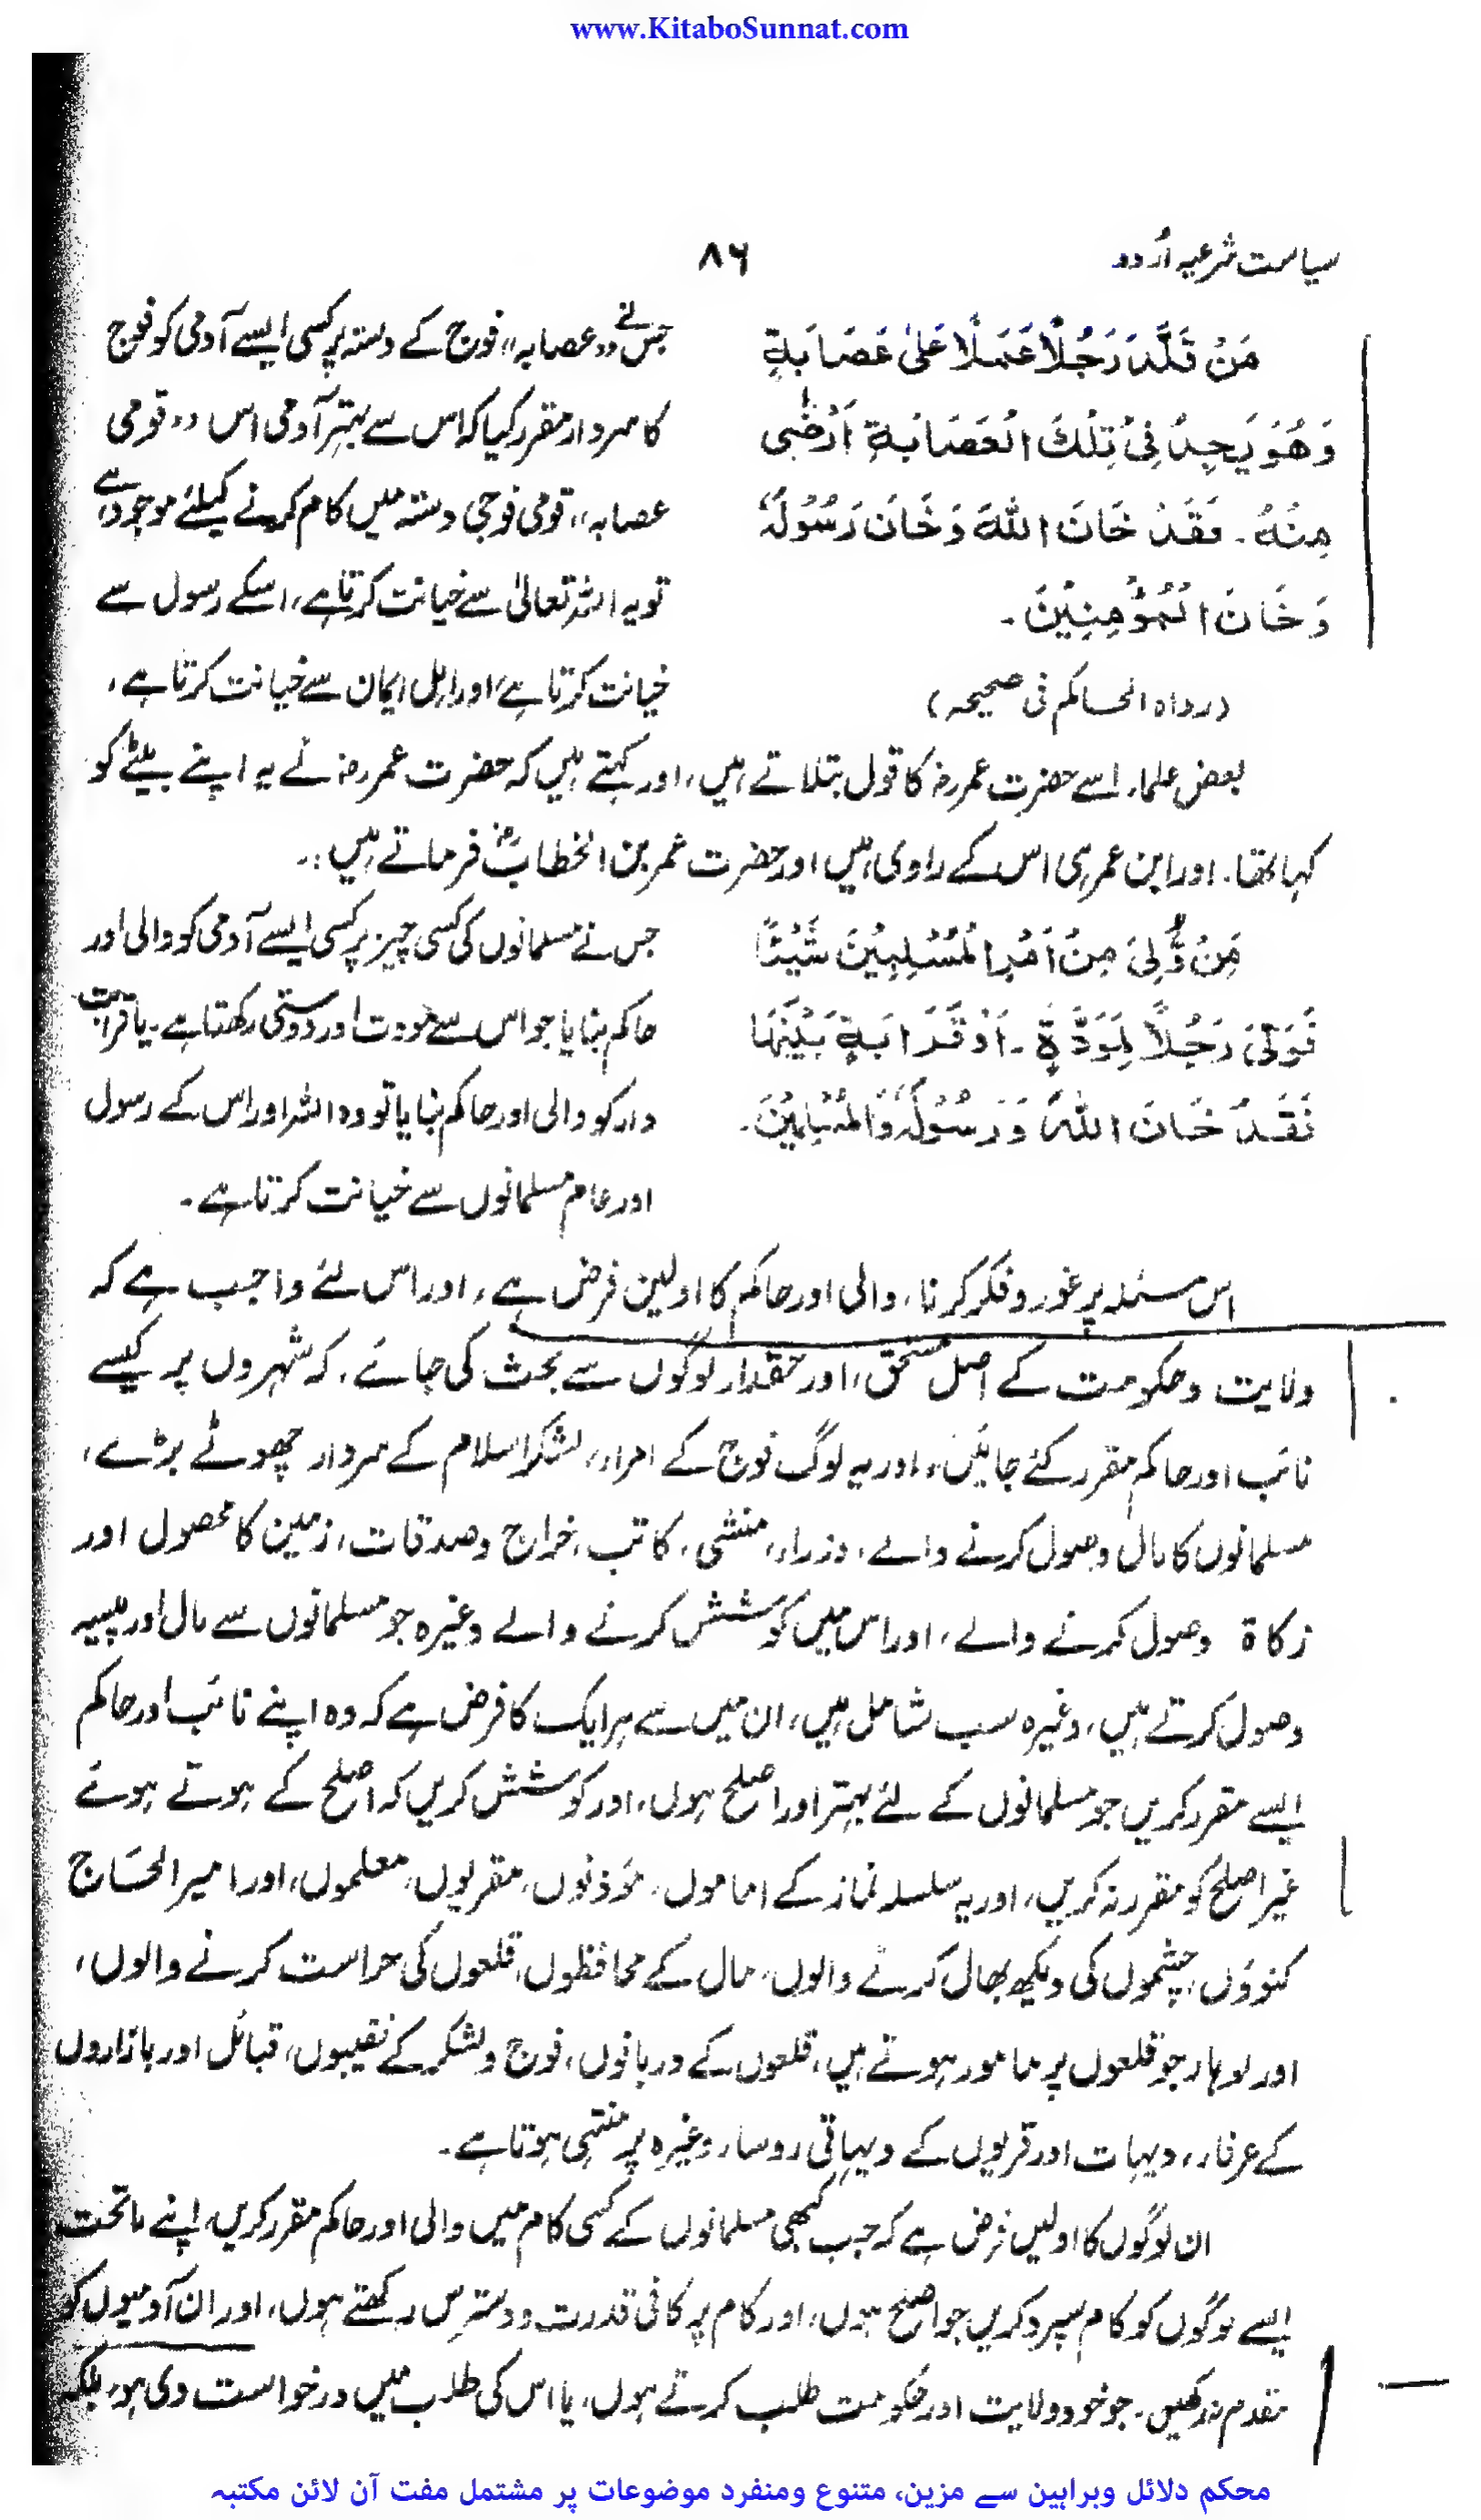 www.KitaboSunnat.com
سیاست شرعیہ اُردو
۸۶
مَنْ قَلَّدَ رَجُلًا عَمَلًا عَلیٰ عَصَابَةٍ
وَهُوَ يَجِدُ فِیْ تِلْكَ الْعَصَابَةِ اَرْضٰی
مِنْهُ۔ فَقَدْ خَانَ اللّٰهَ وَخَانَ رَسُوْلَهٗ
وَخَانَ الْمُؤْمِنِيْنَ۔
(رواہ الحاکم فی صحیحہ)
جس نے ،،عصابہ،، فوج کے دستہ پر کسی ایسے آدمی کو فوج
کا سردار مقرر کیا کہ اس سے بہتر آدمی اس ،،قومی
عصابہ،، قومی فوجی دستہ میں کام کرنے کیلئے موجود ہے
تو یہ اللہ تعالیٰ سے خیانت کرتا ہے، اسکے رسول سے
خیانت کرتا ہے، اور اہل ایمان سے خیانت کرتا ہے،
بعض علماء اسے حضرت عمر رضہ کا قول بتلاتے ہیں، اور کہتے ہیں کہ حضرت عمر رضہ نے یہ اپنے بیٹے کو
کہا تھا۔ اور ابن عمر ہی اس کے راوی ہیں اور حضرت عمر بن الخطابؓ فرماتے ہیں:۔
مَنْ وُّلِیَ مِنْ اَمْرِ الْمُسْلِمِيْنَ شَيْئًا
فَوَلّٰی رَجُلًا لِمَوَدَّةٍ۔ اَوْ قَرَابَةٍ بَيْنَهُمَا
فَقَدْ خَانَ اللّٰهَ وَرَسُوْلَهٗ وَالْمُسْلِمِيْنَ۔
جس نے مسلمانوں کی کسی چیز پر کسی ایسے آدمی کو والی اور
حاکم بنایا جو اس سے مودت اور دوستی رکھتا ہے۔ یا قرابت
دار کو والی اور حاکم بنایا تو وہ اللہ اور اس کے رسول
اور عام مسلمانوں سے خیانت کرتا ہے۔
اس مسئلہ پر غور و فکر کرنا، والی اور حاکم کا اولین فرض ہے، اور اس لئے واجب ہے کہ
ولایت و حکومت کے اصل مستحق، اور حقدار لوگوں سے بحث کی جائے، کہ شہروں پر کیسے
نائب اور حاکم مقرر کئے جائیں، اور یہ لوگ فوج کے امراء، لشکر اسلام کے سردار چھوٹے بڑے،
مسلمانوں کا مال وصول کرنے والے، وزراء، منشی، کاتب، خراج و صدقات، زمین کا محصول اور
زکاۃ وصول کرنے والے، اور اس میں کوشش کرنے والے وغیرہ جو مسلمانوں سے مال اور پیسہ
وصول کرتے ہیں، وغیرہ سب شامل ہیں، ان میں سے ہر ایک کا فرض ہے کہ وہ اپنے نائب اور حاکم
ایسے مقرر کریں جو مسلمانوں کے لئے بہتر اور اصلح ہوں، اور کوشش کریں کہ اصلح کے ہوتے ہوئے
غیر اصلح کو مقرر نہ کریں، اور یہ سلسلہ نماز کے اماموں، مؤذنوں، مقریوں، معلموں، اور امیر الحاج
کنوؤں، چشموں کی دیکھ بھال کرنے والوں، مال کے محافظوں، قلعوں کی حراست کرنے والوں،
اور لوہار جو قلعوں پر مامور ہوتے ہیں، قلعوں کے دربانوں، فوج و لشکر کے نقیبوں، قبائل اور بازاروں
کے عرفاء، دیہات اور قریوں کے دیہاتی روساء وغیرہ پر منتہی ہوتا ہے۔
ان لوگوں کا اولیں فرض ہے کہ جب کبھی مسلمانوں کے کسی کام میں والی اور حاکم مقرر کریں، اپنے ماتحت
ایسے لوگوں کو کام سپرد کریں جو اصلح ہوں، اور کام پر کافی قدرت و دسترس رکھتے ہوں، اور ان آدمیوں کو
مقدم نہ رکھیں۔ جو خود ولایت اور حکومت طلب کرتے ہوں، یا اس کی طلب میں درخواست دی ہو، بلکہ
محکم دلائل وبراہین سے مزین، متنوع ومنفرد موضوعات پر مشتمل مفت آن لائن مکتبہ